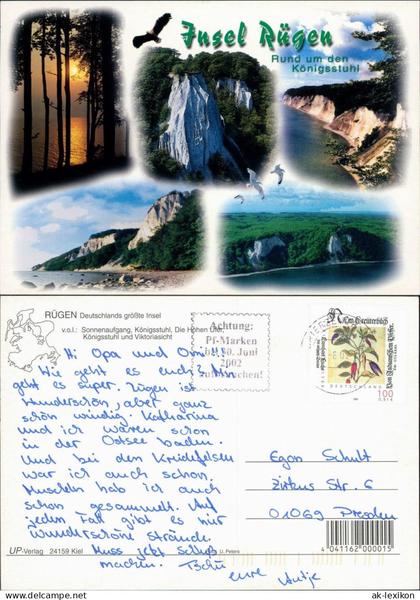 Insel Rügen
Rund um den
Königsstuhl
RÜGEN Deutschlands größte Insel
v.o.l.: Sonnenaufgang, Königsstuhl, Die Hohen Ufer,
Königsstuhl und Viktoriasicht
Achtung:
Pf-Marken
bis 30. Juni
2002
100
0,51 €
DEUTSCHLAND
Hi Opa und Omi!!
Wie geht es euch? Mir
geht es super. Rügen ist
wunderschön, aber ganz
schön windig. Katharina
und ich waren schon
in der Ostsee baden.
Und bei den Kreidefelsen
war ich auch schon.
Muscheln hab ich auch
schon gesammelt. Auf
jeden Fall gibt es hier
wunderschöne Strände.
Muss jetzt Schluß
machen. Tschü
eure Antje
Egon Schult
Zirkus Str. 6
01069 Dresden
UP-Verlag 24159 Kiel
U. Peters
4 041162 000015
Delcampe.net
ak-lexikon